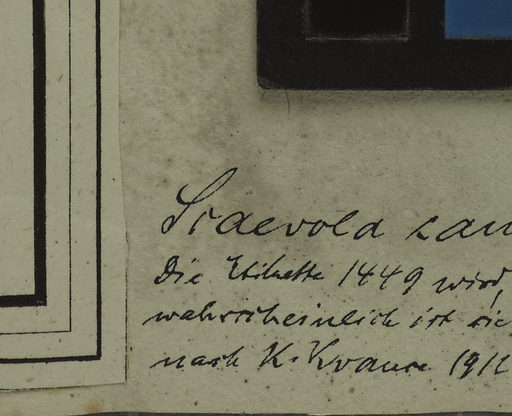 Scaevola lan
Die Etikette 1449 wird,
wahrscheinlich ist sie
nach K. Krause 1912